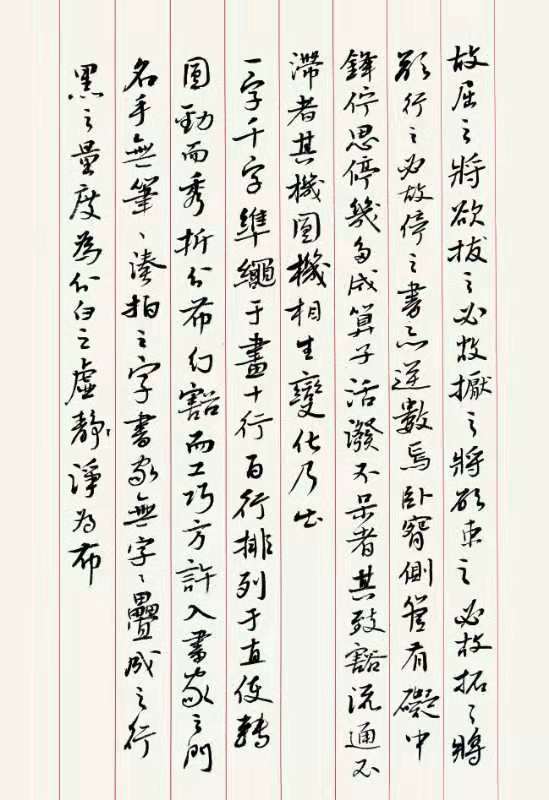 故屈之將欲拔之必故擫之將欲束之必故拓之將
欲行之必故停之書亦逆數焉臥腕側管有礙中
鋒佇思停幾多成算子活潑不呆者其致豁流通不
滯者其機圓機相生變化乃出
一字千字準繩于畫十行百行排列于直使轉
圓勁而秀折分布勻豁而工巧方許入書家之門
名手無筆筆湊拍之字書家無字字疊成之行
黑之量度為分白之虛靜淨為布